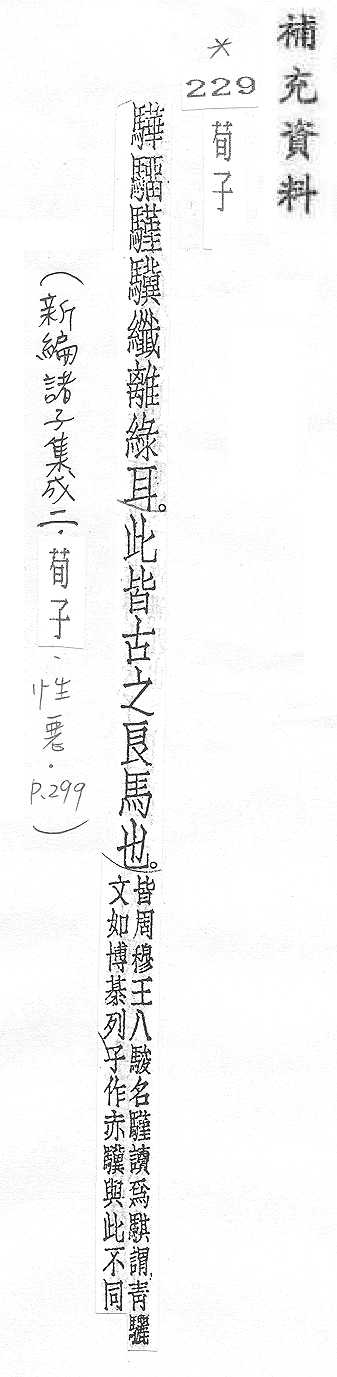 補充資料
*
229
荀子
驊騮騹驥纖離綠耳。此皆古之良馬也。
皆周穆王八駿名騹讀爲騏謂青驪
文如博棊列子作赤驥與此不同
(新編諸子集成二·荀子、性惡·P.299)